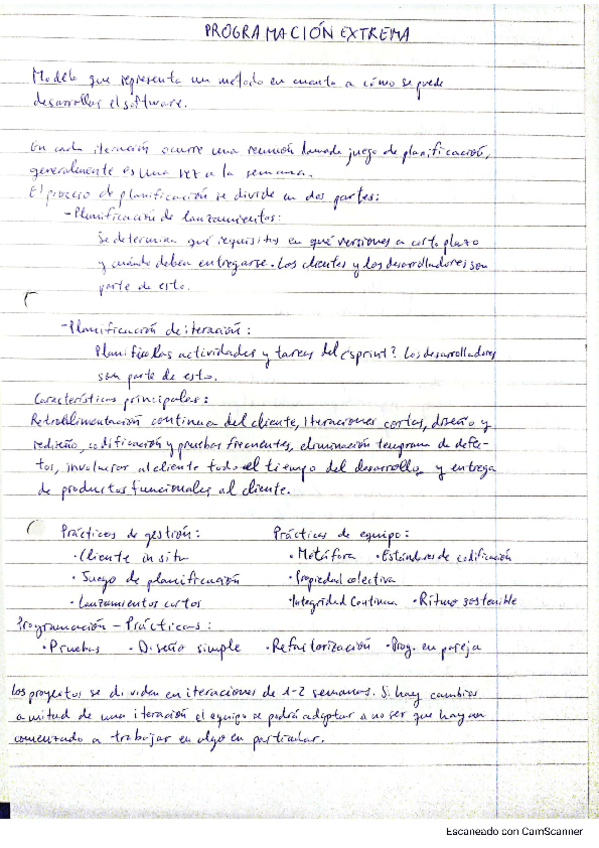 PROGRAMACIÓN EXTREMA
Modelo que representa un método en cuanto a cómo se puede
desarrollar el software.
En cada iteración ocurre una reunión llamada juego de planificación,
generalmente es una vez a la semana.
El proceso de planificación se divide en dos partes:
-Planificación de lanzamientos:
Se determina qué requisitos en qué versiones a corto plazo
y cuándo deben entregarse. Los clientes y los desarrolladores son
parte de esto.
-Planificación de iteración:
Planifica las actividades y tareas del sprint? Los desarrolladores
son parte de esto.
Características principales:
Retroalimentación continua del cliente, Iteraciones cortas, diseño y
rediseño, codificación y pruebas frecuentes, eliminación temprana de defec-
tos, involucrar al cliente todo el tiempo del desarrollo y entrega
de productos funcionales al cliente.
Prácticas de gestión: Prácticas de equipo:
• Cliente in situ • Metáfora • Estándares de codificación
• Juego de planificación • Propiedad colectiva
• Lanzamientos cortos • Integridad Continua • Ritmo sostenible
Programación - Prácticas:
• Pruebas • Diseño simple • Refactorización • Prog. en pareja
Los proyectos se dividen en iteraciones de 1-2 semanas. Si hay cambios
a mitad de una iteración el equipo se podrá adaptar a no ser que hayan
comenzado a trabajar en algo en particular.
Escaneado con CamScanner